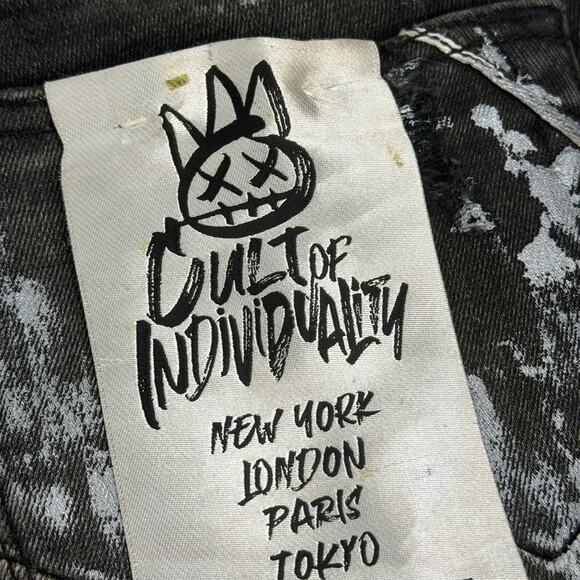 CULT OF
INDIVIDUALITY
NEW YORK
LONDON
PARIS
TOKYO